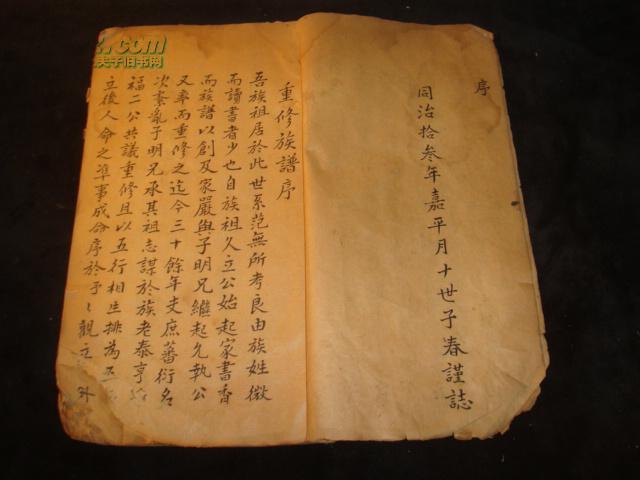 序
同治拾叁年嘉平月十世子春謹誌
重修族譜序
吾族祖居於此世系茫無所考良由族姓微
而讀書者少也自族祖久立公始起家書香
而族譜以創及家嚴與子明兄繼起允執公
又率而重修之迄今三十餘年支庶蕃衍名
次紊亂子明兄承其祖志謀於族老泰亨
福二公共議重修且以五行相生排為五
立後人命之準事成命序於予々觀
.com
夫子旧书网